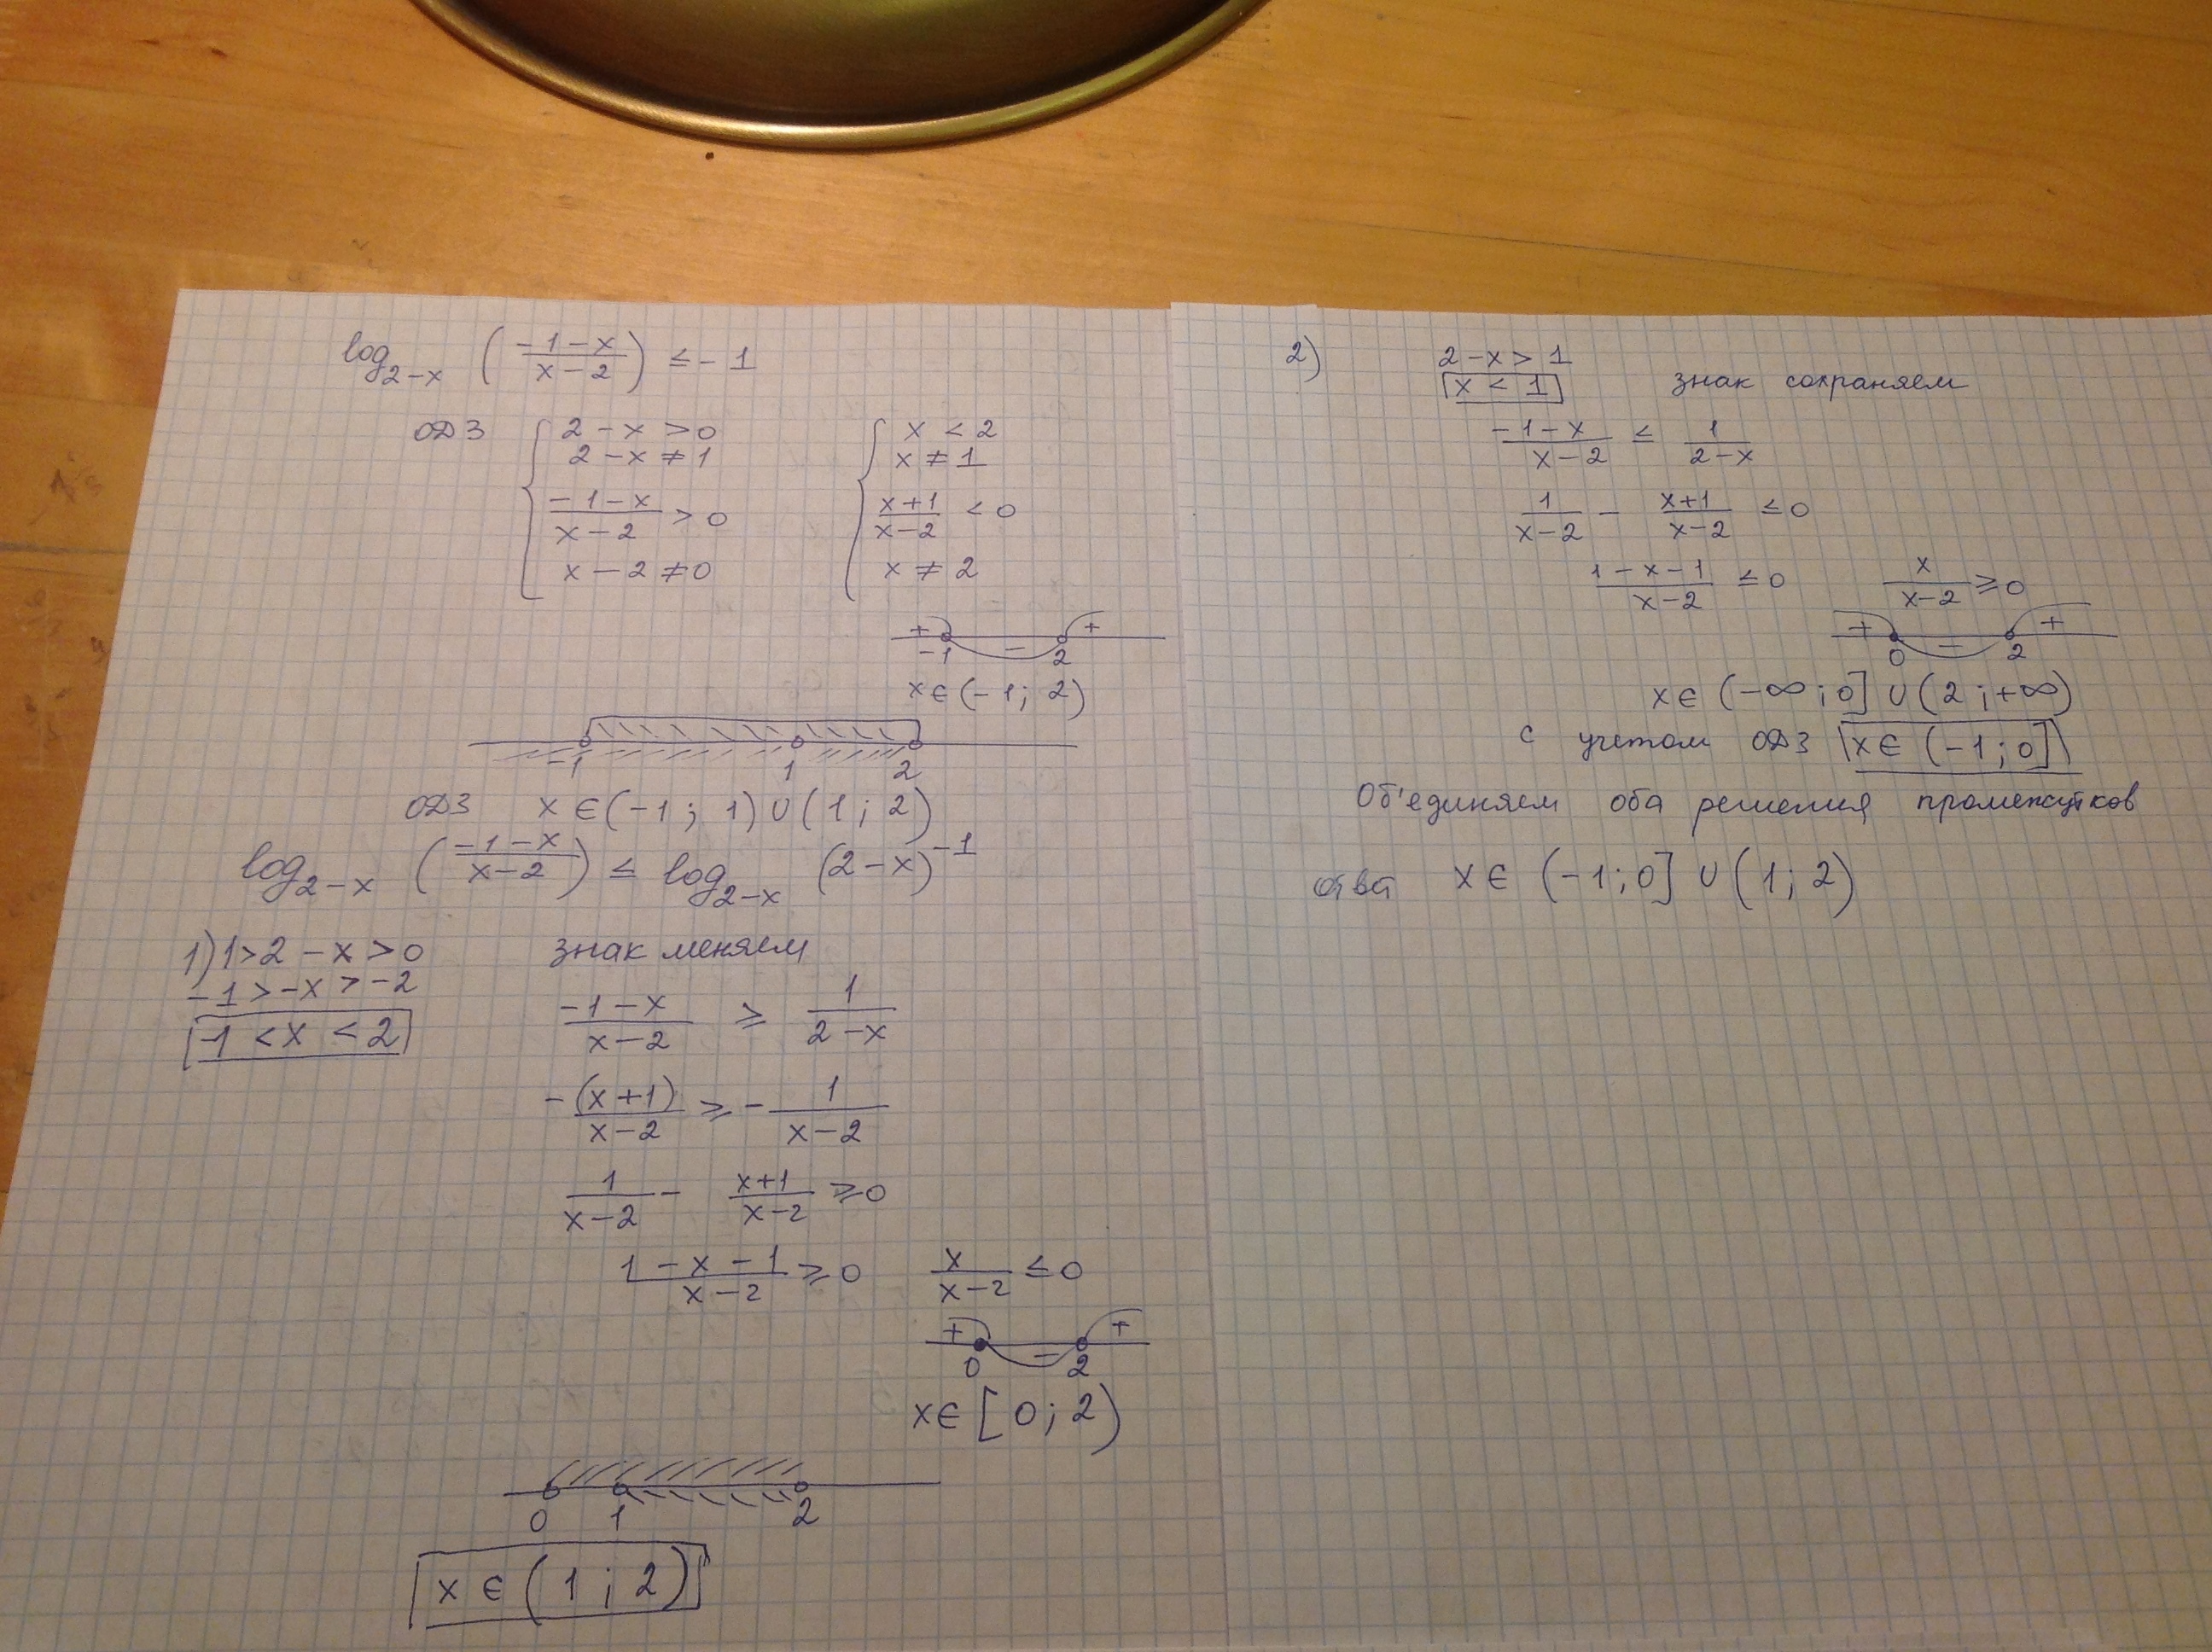 log₂₋ₓ ( (-1-x)/(x-2) ) ≤ -1
ОДЗ { 2-x > 0 { x < 2
2-x ≠ 1 x ≠ 1
(-1-x)/(x-2) > 0 (x+1)/(x-2) < 0
x-2 ≠ 0 x ≠ 2
+ - +
-1 2
x ∈ (-1; 2)
-1 1 2
ОДЗ x ∈ (-1; 1) ∪ (1; 2)
log₂₋ₓ ( (-1-x)/(x-2) ) ≤ log₂₋ₓ (2-x)⁻¹
1) 1 > 2-x > 0 знак меняем
-1 > -x > -2
1 < x < 2
(-1-x)/(x-2) ≥ 1/(2-x)
-(x+1)/(x-2) ≥ -1/(x-2)
1/(x-2) - (x+1)/(x-2) ≥ 0
(1-x-1)/(x-2) ≥ 0 x/(x-2) ≤ 0
+ - +
0 2
x ∈ [0; 2)
0 1 2
x ∈ (1; 2)
2) 2-x > 1
x < 1 знак сохраняем
(-1-x)/(x-2) ≤ 1/(2-x)
1/(x-2) - (x+1)/(x-2) ≤ 0
(1-x-1)/(x-2) ≤ 0 x/(x-2) ≥ 0
+ - +
0 2
x ∈ (-∞; 0] ∪ (2; +∞)
с учетом ОДЗ x ∈ (-1; 0]
Об'единяем оба решения промежутков
ответ x ∈ (-1; 0] ∪ (1; 2)